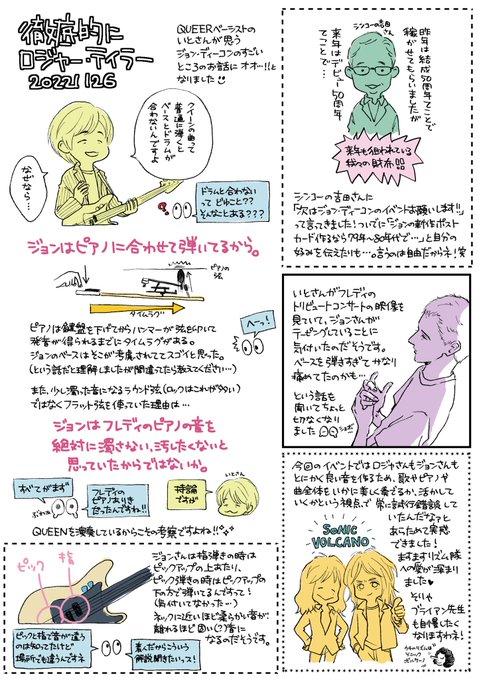 徹底的に
ロジャー・テイラー
20221126
QUEERベーシストの
いとさんが思う
ジョン・ディーコンのすごい
ところのお話に オオ…!!と
なりました
クイーンの曲って
普通に弾くと
ベースとドラムが
合わないんですよ
なぜなら…
ドラムと合わない
って どゆこと??
そんなことある???
ジョンはピアノに合わせて弾いてるから。
ピアノの
弦
タイムラグ
ピアノは鍵盤を下げてからハンマーが弦を叩いて
発音が得られるまでにタイムラグがある。
ジョンのベースはそこが考慮されててスゴイと思った。
(という話だと理解しましたが間違ってたら教えてください…)
へーっ!
また、少し濁った音になるラウンド弦(ロックはこれが多い)
ではなくフラット弦を使っていた理由は…
ジョンはフレディのピアノの音を
絶対に濁さない、汚したくないと
思っていたからではないか。
いとさん
フレディの
ピアノありき
だったんですね!!
持論
ですが
QUEENを演奏しているからこその考察ですよね!!
ピック
指
ジョンさんは指弾きの時は
ピックアップの上あたり、
ピック弾きの時はピックアップの
下の方で弾いてるんですって!
(気付いてなかった…)
ネックに近いほど柔らかい音が、
離れるほど固い(?)音に
なるのだそうです。
ピックと指で音が違う
のは知ってたけど
場所でも違うんですネ
素人だからこういう
解説聞きたいッス!
シンコーの
吉田さん
昨年は結成50周年てことで
稼がせてもらいましたが
来年はデビュー50周年
てことで…
来年も狙われている
我々の財布
シンコーの吉田さんに
「次はジョン・ディーコンのイベントお願いします!!」
って言てきました!ついでに「ジョンの新作ポスト
カード作るなら79年〜80年代で…」と自分の
好みを伝えたいも…。言うのは自由だからネ!笑
いとさんがフレディの
トリビュートコンサートの映像を
見ていて、ジョンさんが
テーピングしていることに
気付いたのだそうです。
ベースを弾きすぎて かなり
痛めてたのかも…
という話を
聞いてちょっと
切なくなり
ました
今回のイベントではロジャさんもジョンさんも
とにかく良い音を作るため、歌やピアノや
曲全体をいかに美しく奏でるか、活かして
いくかという視点で 常に試行錯誤して
いたんだなァと
あらためて実感
できました!
ますますリズム隊
への愛が深まり
ました
そりゃ
ブライアン先生
も自慢したく
なりますわネ!
SONIC
VOLCANO
ウチのリズム隊は
ソニック
ボルケーノ